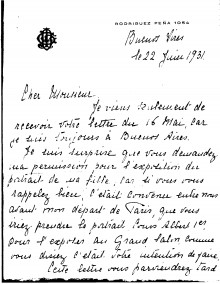 RODRIGUEZ PEÑA 1054
Buenos Aires
le 22 Juin 1931
Cher Monsieur
Je viens seulement de
recevoir votre lettre du 16 Mai, car
je suis toujours à Buenos Aires.
Je suis surprise que vous demandez
ma permission pour l'exposition du
portrait de ma fille, car si vous vous
rappelez bien, c'était convenu entre nous
avant mon départ de Paris, que vous
iriez prendre le portrait Cours Albert 1er
pour l'exposer au Grand Salon comme
vous disiez c'était votre intention de faire.
Cette lettre vous parviendrez tard